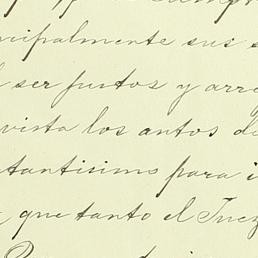 siempre
ncipalmente sus s
ser justos y arre
vista los autos de
tantisimo para i
, que tanto el Juez